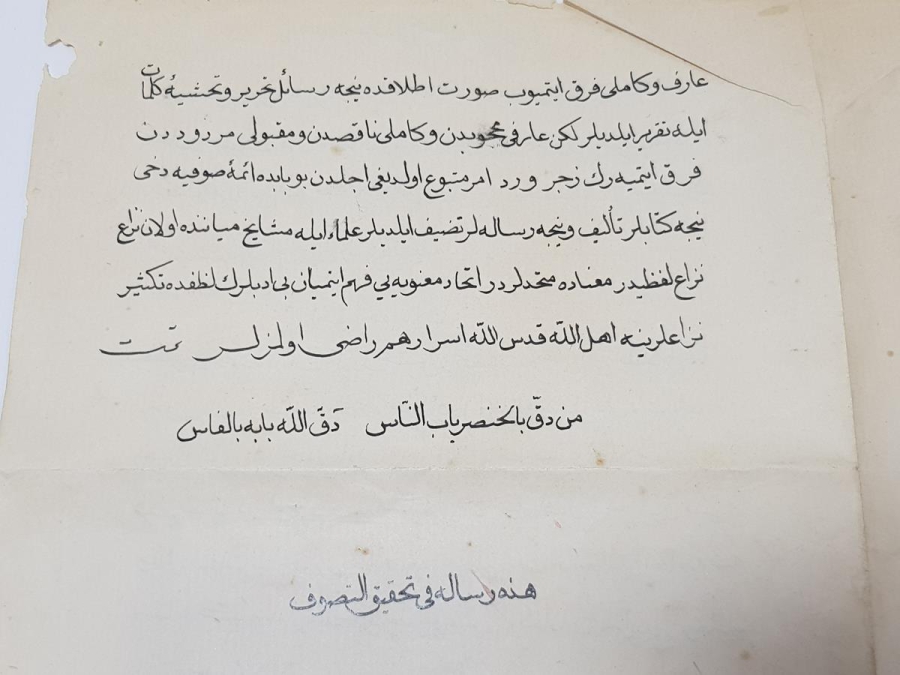 عارف و كاملى فرق ايتميوب صورت اطلاقده نيجه رسائل تحرير و تحشيهٔ كلمات
ايله تقرير ايلديلر لكن عارفى محجوبدن و كاملى ناقصدن و مقبولى مردوددن
فرق ايتميه رك زجر ورد امر متبوع اولديغى اجلدن بو بابده ائمهٔ صوفيه دخى
نيجه كتابلر تأليف و نيجه رساله لر تصنيف ايلديلر علماء ايله مشايخ ميانده اولان نزاع
نزاع لفظيدر معناده متحدلردر اتحاد معنويه يى فهم ايتميان بى ادبلرك لظفده تكثير
نزاعلرينه اهل الله قدس الله اسرارهم راضى اولمزلر تمت
من دقّ بالخنصر باب النّاس دَقَّ اللّه بابه بالفاس
هذه رساله فى تحقيق التصوف